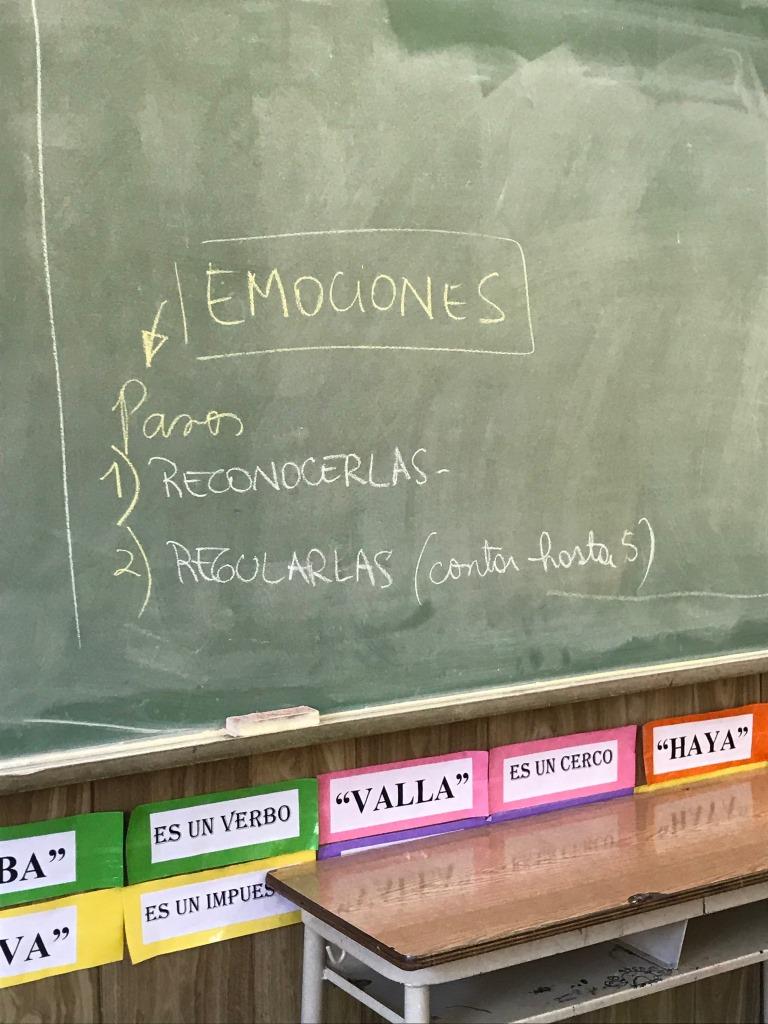 EMOCIONES
Pasos
1) RECONOCERLAS-
2) REGULARLAS (contar hasta 5)
BA" ES UN VERBO "VALLA" ES UN CERCO "HAYA"
VA" ES UN IMPUES